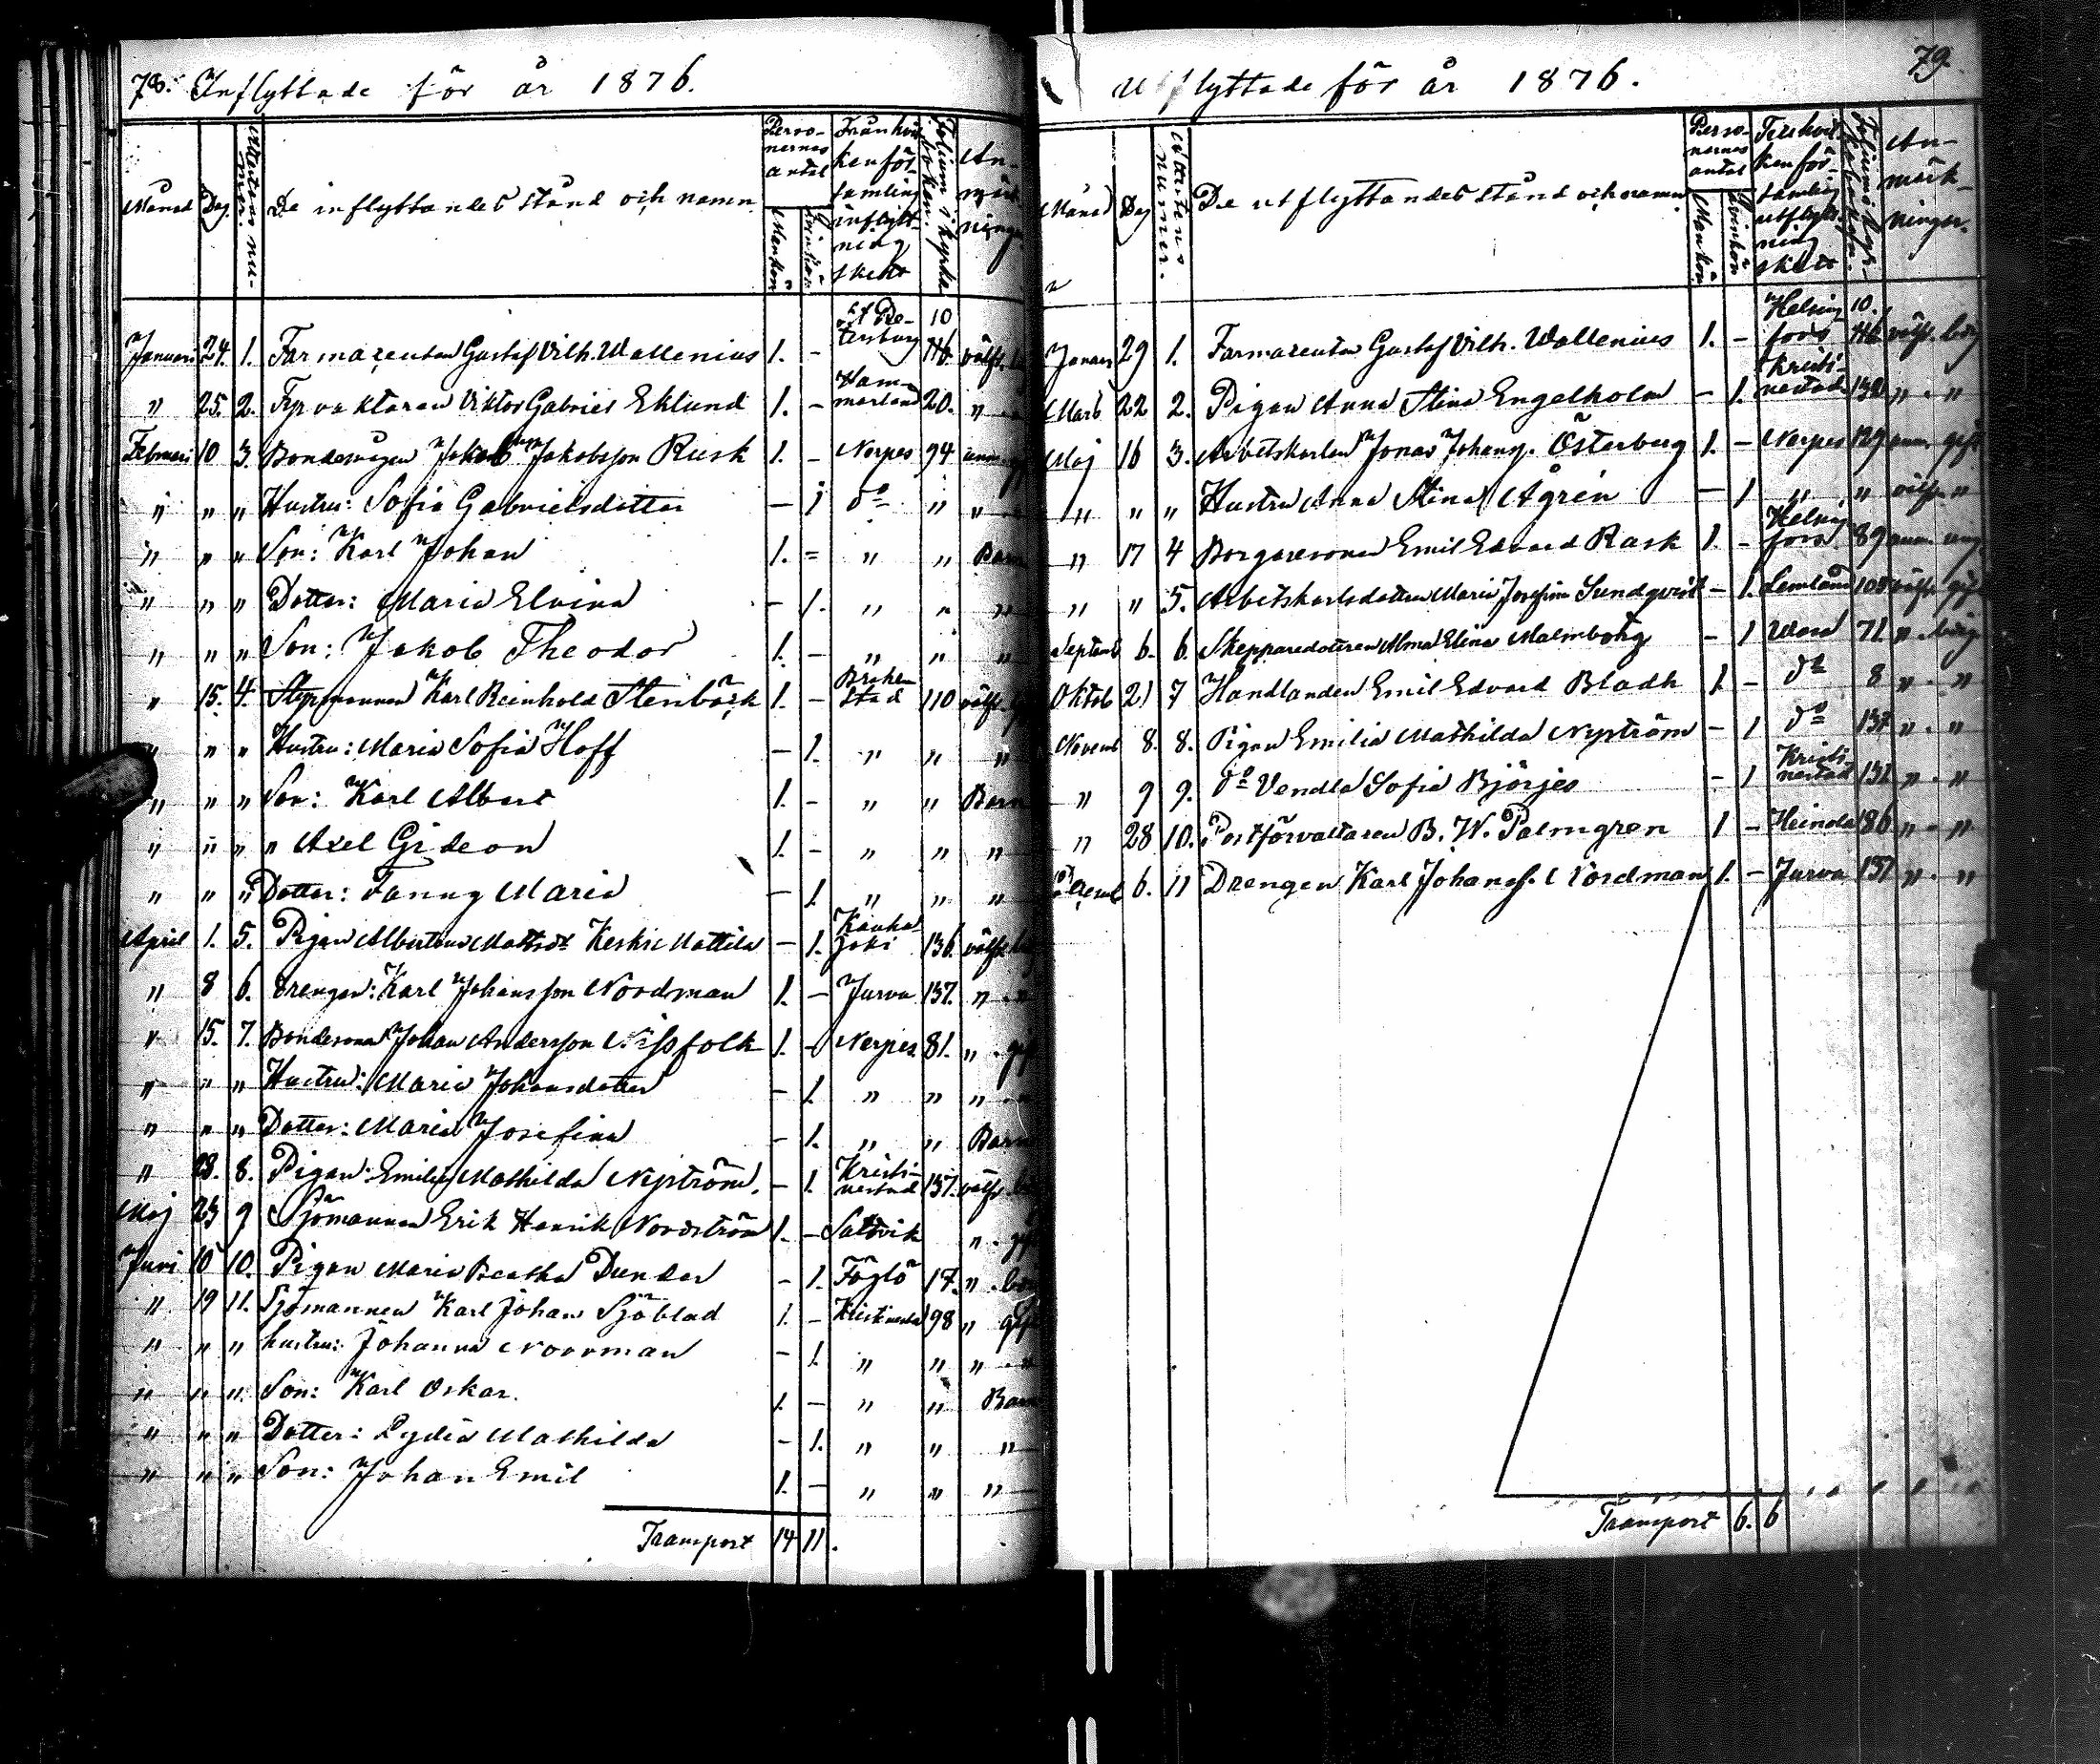 78. Inflyttade för år 1876.
Månad Dag Attestens nummer De inflyttandes stånd och namn Personernes antal Mankön Qvinkön Från hvilken församling inflyttning skett Folium i kyrkoboken An-
Januari 24. 1. Farmaceuten Gustaf Vilh. Wallenius 1. – St Petersburg 10 116. välfr.
" 25. 2. Fyrvaktaren Viktor Gabriel Eklund 1. – Hammarland 20. "
Februari 10 3. Bondesvågen Jakob Jakobsson Rusk 1. – Nerpes 94
" " " Hustru: Sofia Gabrielsdotter – 1 do " "
" " " Son: Karl Johan 1. = " " Barn
" " " Dotter: Maria Elvina – 1. " " "
" " " Son: Jakob Theodor 1. – " " "
" 15. 4. Styrmannen Karl Reinhold Stenbäck 1. – Brahestad 110 välfr.
" " " Hustru: Maria Sofia Hoff – 1. " " "
" " " Son: Karl Albert 1. – " " Barn
" " " " Axel Gideon 1. – " " "
" " " Dotter: Fanny Maria – 1. " " "
April 1. 5. Pigan Albertina Mattsdr Keski Mattila – 1. Kauhajoki 136. välfr.
" 8 6. Drengen: Karl Johansson Nordman 1. – Jurva 137. " "
" 15. 7. Bondesonen Johan Andersson Nissfolk 1. – Nerpes 81. " gif
" " " Hustru: Maria Johansdotter – 1. " " "
" " " Dotter: Maria Josefina – 1. " " Barn
" 28. 8. Pigan: Emilia Mathilda Nyström. – 1. Kristinestad 137. välfr.
Maj 23 9 Sjömannen Erik Henrik Nordström 1. – Saltvik " . gif
Juni 10 10. Pigan Maria Beatha Dunder – 1. Föglö 17. "
" 19 11. Sjömannen Karl Johan Sjöblad 1. – Kristinesta 98 " gif
" " " hustru: Johanna Norrman – 1. " " "
" " " Son: Karl Oskar. 1. – " " Barn
" " " Dotter: Lydia Mathilda – 1. " " "
" " " Son: Johan Emil 1. – " " "
Transport 14 11.
79.
Utflyttade för år 1876.
Månad Dag Attestens nummer. De utflyttandes stånd och namn Personernes antal Mankön Qvinkön Till hvilken församling utflyttning skett Anmärkningar.
Januari 29 1. Farmaceuten Gustaf Vilh. Wallenius 1. – Helsingfors 10. 116 välfr. beg
Mars 22 2. Pigan Anna Stina Engelholm – 1. Kristinestad 132 " . "
Maj 16 3. Arbetskarlen Jonas Johans. Österberg 1. – Nerpes 129 gift
" " " Hustru Anna Stina Ågren – 1 " " välfr "
" 17 4 Borgaresonen Emil Edvard Rask 1. – Helsingfors 89
" " 5. Arbetskarlsdottren Maria Josefina Sundqvist – 1. Lemland 108 välfr.
Septemb 6. 6. Skepparedotteren Alma Elina Malmborg – 1 Wasa 71 "
Oktob 21 7 Handlanden Emil Edvard Bladh 1. – do 8 " . "
Novemb 8. 8. Pigan Emilia Mathilda Nyström – 1 do 137 " . "
" 9 9. do Vendla Sofia Björjes – 1 Kristinestad 131 " . "
" 28 10. Postförvaltaren B. W. Palmgren 1 – Heinola 86 " . "
Decemb 6. 11 Drengen Karl Johanss. Nordman 1. – Jurva 137 " . "
Transport 6. 6